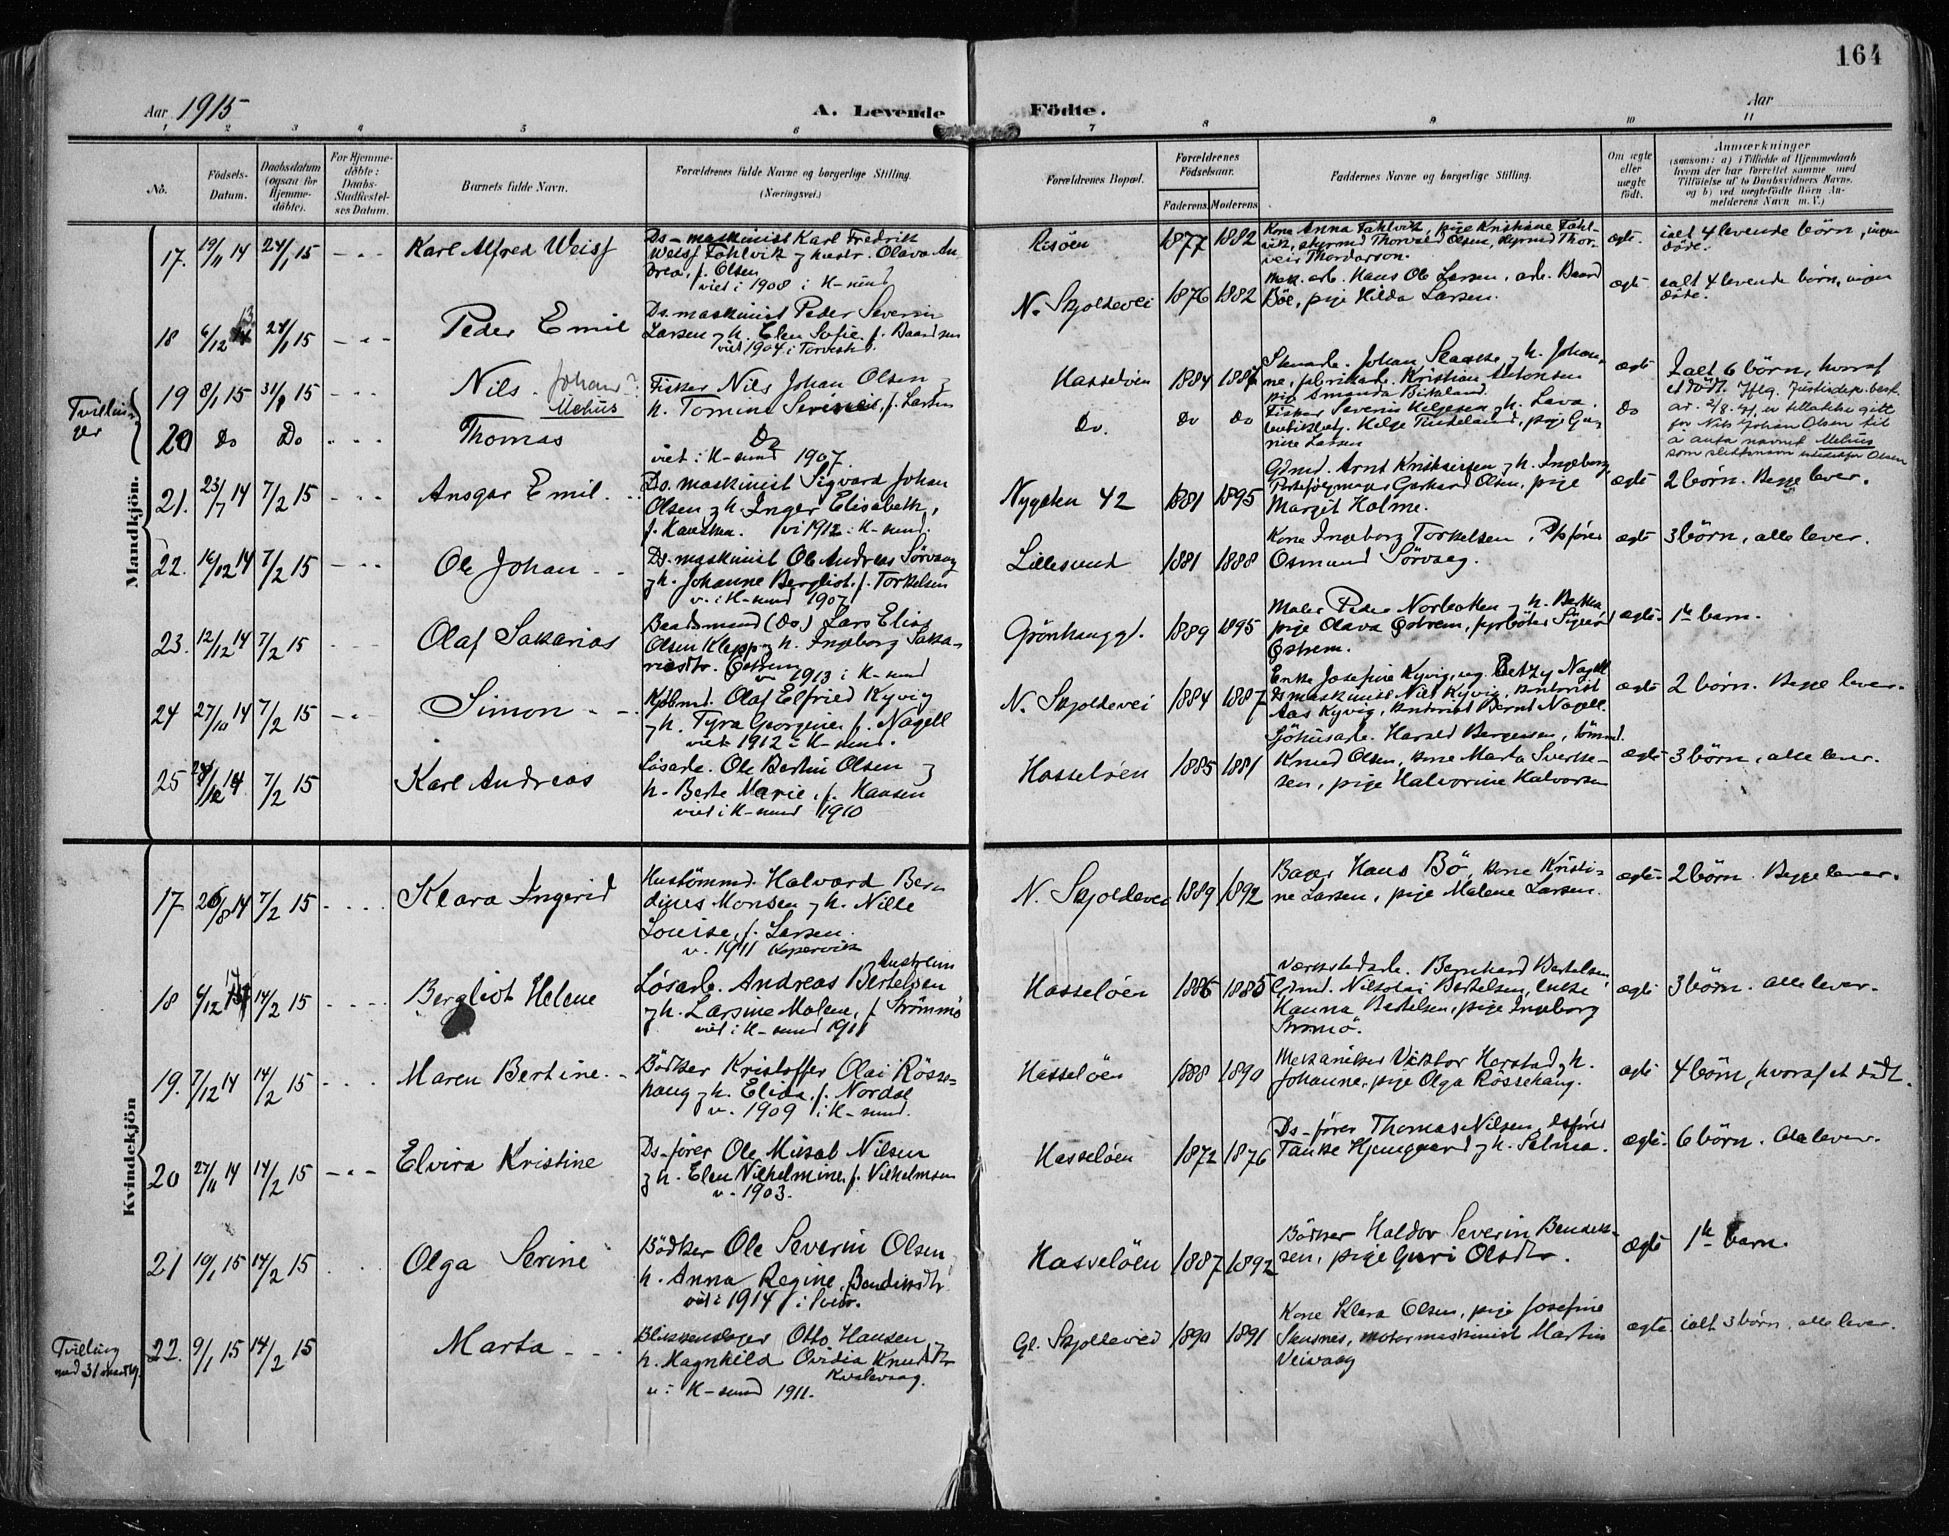 164
Aar 1915
A. Levende
Födte.
Aar
1 2 3 4 5 6 7 8 9 10 11
No.
Födsels-
Datum.
Daabsdatum
(ogsaa for
Hjemme-
döbte).
For Hjemme-
döbte:
Daabs-
Stadfæstel-
ses Datum.
Barnets fulde Navn.
Forældrenes fulde Navne og borgerlige Stilling.
(Næringsvei.)
Forældrenes Bopæl.
Forældrenes
Födselsaar.
Faderens.
Moderens
Faddernes Navne og borgerlige Stilling.
Om ægte
eller
uægte
födt.
Anmærkninger
(saasom: a) i Tilfælde af Hjemmedaab
hvem der har forrettet samme med
Tilföielse af to Daabsvidners Navne,
og b) ved uægtefödte Börn An-
melderens Navn m. V.)
Mandkjön.
17. 19/11 14 24/1 15 - " -
Karl Alfred Weisf
Ds-maskinist Karl Fredrik
Weisf Fahlvik og hustr. Olava An
drea, f. Olsen
viet i 1908 i K-sund
Risöen
1877 1882
Kone Anna Fahlvik, pige Kristiane Fahl-
vik, styrmd Thorvald Olsen, styrmd Thor-
veis Thordarson.
ægte.
ialt 4 levende börn, ingen
döde.
18 6/12 13 24/1 15 - " -
Peder Emil
Ds. maskinist Peder Severin
Larsen og h. Elen Sofie f. Baardsen
viet 1904 i Torvestad.
N. Skjoldevei
1876 1882
Mek. arb. Hans Ole Larsen, arb. Baard
Böe, pige Hilda Larsen.
ægte
ialt 4 levende börn, ingen
döde.
Tvillin-
ger
19 8/1 15 31/1 15 - " -
Nils Johan?
Mehus
Fisker Nils Johan Olsen og
h. Tomine Serine, f. Larsen
Hasselöen
1884 1887
Johan Skaake og h. Johan-
ne, fabrikarb. Kristian Antonsen
pige Amanda Birkeland.
ægte
I alt 6 börn, hvoraf
et dödt. Iflg. Justisdep. besk.
av 2/8.21, er tillatelse gitt
for Nils Johan Olsen til
å anta navnet Mehus
som slektsnavn istedetfor Olsen
20 Do Do - " -
Thomas
Do
viet i K-sund 1907.
Do.
Do Do
Fisker Severin Helgesen og h. Lava.
Helge Tindeland, pige Gu-
rine Larsen
Do
21. 23/7 14 7/2 15 - " -
Ansgar Emil. - -
Ds. maskinist Sigvard Johan
Olsen og h. Inger Elisabeth,
vi 1912 i K-sund.
Nygaten 42
1881 1895
Gdmd. Arnt Kristiansen og h. Ingeborg,
Gerhard Olsen, pige
Margit Holme.
ægte
2 börn. Begge lever.
22. 16/12 14 7/2 15 - " -
Ole Johan - -
Ds. maskinist Ole Andreas Sörvaag
og h. Johanne Bergliot, f. Torkelsen
v. i K-sund 1907
Lillesund
1881 1888
Kone Ingeborg Torkelsen, D/s förer
Osmund Sörvaag.
ægte
3 börn, alle lever.
23. 12/12 14 7/2 15
Olaf Sakarias
Baadsmand (Ds) Lars Elias
Olsen Klepp og h. Ingeborg Saka-
riasdtr. Östrem
v 1913 i K-sund
Grönhauggt.
1889 1895
Maler Peder Norbotten og h. Bertha,
pige Olava Östrem, fyrböter Sigurd
Östrem.
ægte.
1ste barn.
24 27/10 14 7/2 15 - " -
Simon - -
Kjöbmd. Olaf Elfried Kyvig
og h. Tyra Georgine f. Nagell
viet 1912 i K-sund.
N. Skjoldevei
1884 1887
Enke Josefine Kyvig, ug. Betzy Nagell
Ds maskinist Nils Kyvig, kontorist
Aas Kyvig, kontorist Bernt Nagell.
ægte
2 börn. Begge lever.
25 14 7/2 15
Karl Andreas
Lösarb. Ole Bertin Olsen og
h. Berte Marie, f. Hansen
viet i K-sund 1910
Hasselöen
1885 1881
Sjöhusarb. Harald Bergesen, tömmd.
Knud Olsen, kone Marta Sverke-
sen, pige Halvorine Halvorsen
ægte
3 börn, alle lever.
Kvindekjön
17 26/8 14 7/2 15 - - - -
Klara Ingerid
Hustömmd. Halvard Ber-
dines Monsen og h. Nille
Louise, f. Larsen.
v. 1911 Kopervik
N. Skjoldevei
1889 1892
Bager Hans Bö, kone Kristi-
ne Larsen, pige Malene Larsen.
ægte.
2 börn. Begge lever.
18 6/12 14 14/2 15 - - - -
Bergliot Helene
Austreim
Lösarb. Andreas Bertelsen
og h. Larsine Malene, f. Strömmö
viet i K-sund 1911
Hasselöen
1886 1885
Værkstedarb. Bernhard Bertelsen,
Gdmd. Nikolai Bertelsen, enke
Hanna Bertelsen, pige Ingeborg
Strömö.
ægte
3 börn. alle lever.
19. 7/12 14 14/2 15 - - -
Maren Bertine. -
Bödker Kristoffer Olai Rösse-
haug og h. Elida, f. Nordal
v. 1909 i K-sund.
Hasselöen
1888 1890
Mekaniker Viktor Herstad og h.
Johanne, pige Olga Rössehaug.
ægte
4 börn, hvoraf et dödt.
20 27/11 14 14/2 15 - " -
Elvira Kristine
Ds-förer Ole Missal Nilsen
og h. Elen Vilhelmine, f. Vilhelmsen
v. 1903.
Hasselöen
1872 1876
Ds-förer Thomas Nilsen, Dsförer
Tanke Hjemgaard og h. Selma.
ægte.
6 börn. Alle lever.
21 10/1 15 14/2 15
Olga Serine
Bödker Ole Severin Olsen
h. Anna Regine Bendiksdtr
viet i 1914 i Sveio.
Hasselöen
1887 1892
Bödker Haldor Severin Bendik-
sen, pige Guri Olsdtr.
ægte
1ste barn.
Tvilling
med 31 mandkj.
22. 9/1 15 14/2 15
Marta - - -
Blikkenslager Otto Hansen og
h. Magnhild Ovidia Knudsdtr
Kvalevaag.
v i K-sund 1911.
Gl. Skjoldevei
1890 1891
Kone Klara Olsen, pige Josefine
Skusnes, motormaskinist Martin
Veivaag
ægte.
ialt 3 börn. alle lever.